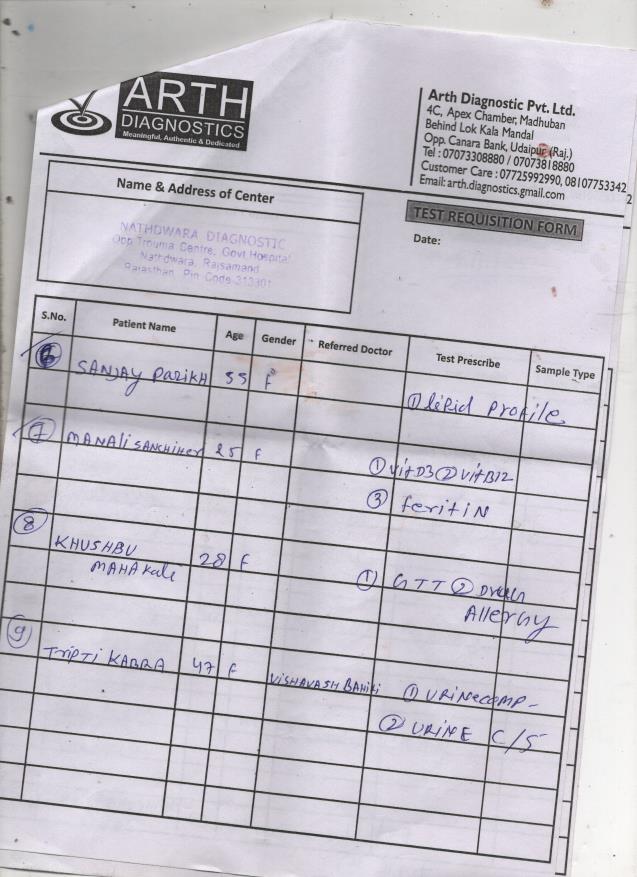 ARTH
DIAGNOSTICS
Meaningful, Authentic & Dedicated
Arth Diagnostic Pvt. Ltd.
4C, Apex Chamber, Madhuban
Behind Lok Kala Mandal
Opp. Canara Bank, Udaipur (Raj.)
Tel : 07073308880 / 07073818880
Customer Care : 07725992990, 08107753342
Email: arth.diagnostics.gmail.com
2
Name & Address of Center
NATHDWARA DIAGNOSTIC
Opp Trouma Centre, Govt Hospital
Nathdwara, Rajsamand
Rajasthan, Pin Code-313301
TEST REQUISITION FORM
Date:
S.No. Patient Name Age Gender Referred Doctor Test Prescribe Sample Type
6 SANJAY PARIKH 55 F ① lipid PROFILE
7 MANALI SANCHIHER 25 F ① VitD3 ② VitB12
③ feritin
8 KHUSHBU MAHAKALI 28 F ① GTT ② Drug
Allergy
9 TRIPTI KABRA 47 F VISHAVASH BAHIKI ① URINE COMP-
② URINE C/S